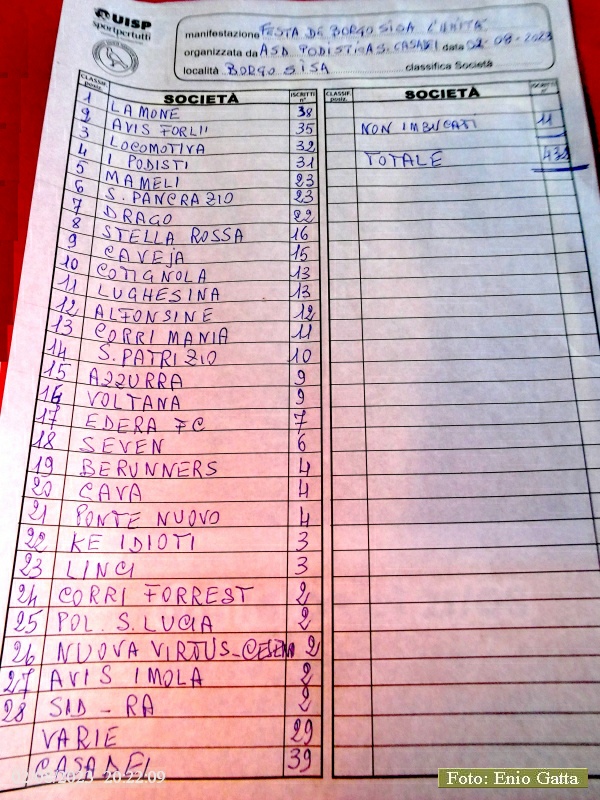 UISP
sportpertutti
manifestazione FESTA DE BORGO SISA L'UNITÀ
organizzata da ASD PODISTI AS. CASADEI data 02-08-2023
località BORGO SISA classifica Società
CLASSIF. posiz. SOCIETÀ ISCRITTI n°
1 LAMONE 38
2 AVIS FORLII 35
3 LOCOMOTIVA 32
4 I PODISTI 31
5 MAMELI 23
6 S. PANCRAZIO 23
7 DRAGO 22
8 STELLA ROSSA 16
9 CAVEJA 15
10 COTIGNOLA 13
11 LUGHESINA 13
12 ALFONSINE 12
13 CORRI MANIA 11
14 S. PATRIZIO 10
15 AZZURRA 9
16 VOLTANA 9
17 EDERA FC 7
18 SEVEN 6
19 BERUNNERS 4
20 CAVA 4
21 PONTE NUOVO 4
22 KE IDIOTI 3
23 LINCI 3
24 CORRI FORREST 2
25 POL. S. LUCIA 2
26 NUOVA VIRTUS-CESENA 2
27 AVIS IMOLA 2
28 SAD - RA 2
VARIE 29
CASADEI 39
CLASSIF. posiz. SOCIETÀ ISCRITTI n°
NON IMBUCATI 11
TOTALE 432
2023 20:22:09
Foto: Enio Gatta